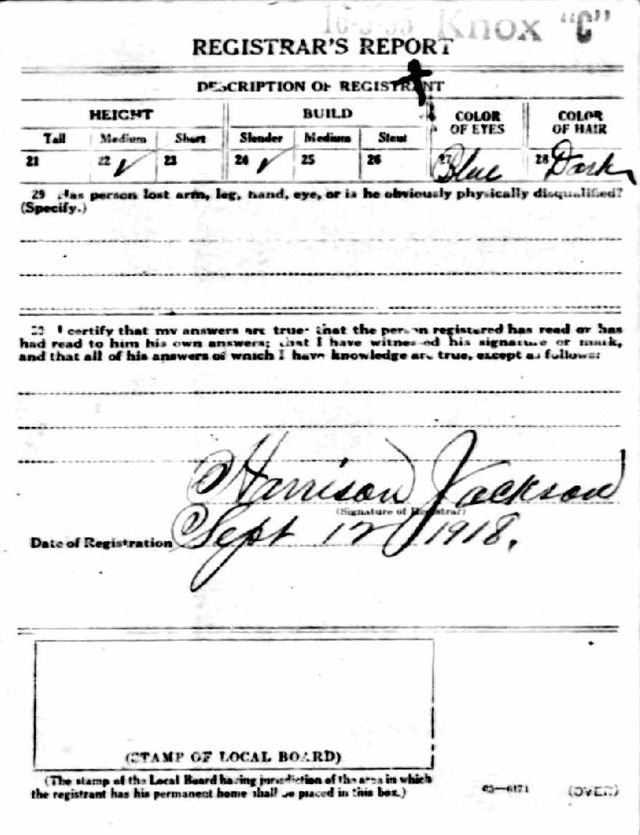 Knox "C"
REGISTRAR'S REPORT
DESCRIPTION OF REGISTRANT
HEIGHT BUILD COLOR OF EYES COLOR OF HAIR
Tall Medium Short Slender Medium Stout
21 22 ✓ 23 24 ✓ 25 26 27 Blue 28 Dark
29 Has person lost arm, leg, hand, eye, or is he obviously physically disqualified?
(Specify.)
30 I certify that my answers are true; that the person registered has read or has
had read to him his own answers; that I have witnessed his signature or mark,
and that all of his answers of which I have knowledge are true, except as follows:
Harrison Jackson
(Signature of Registrar)
Date of Registration Sept 12 1918.
(STAMP OF LOCAL BOARD)
(The stamp of the Local Board having jurisdiction of the area in which
the registrant has his permanent home shall be placed in this box.)
(OVER)